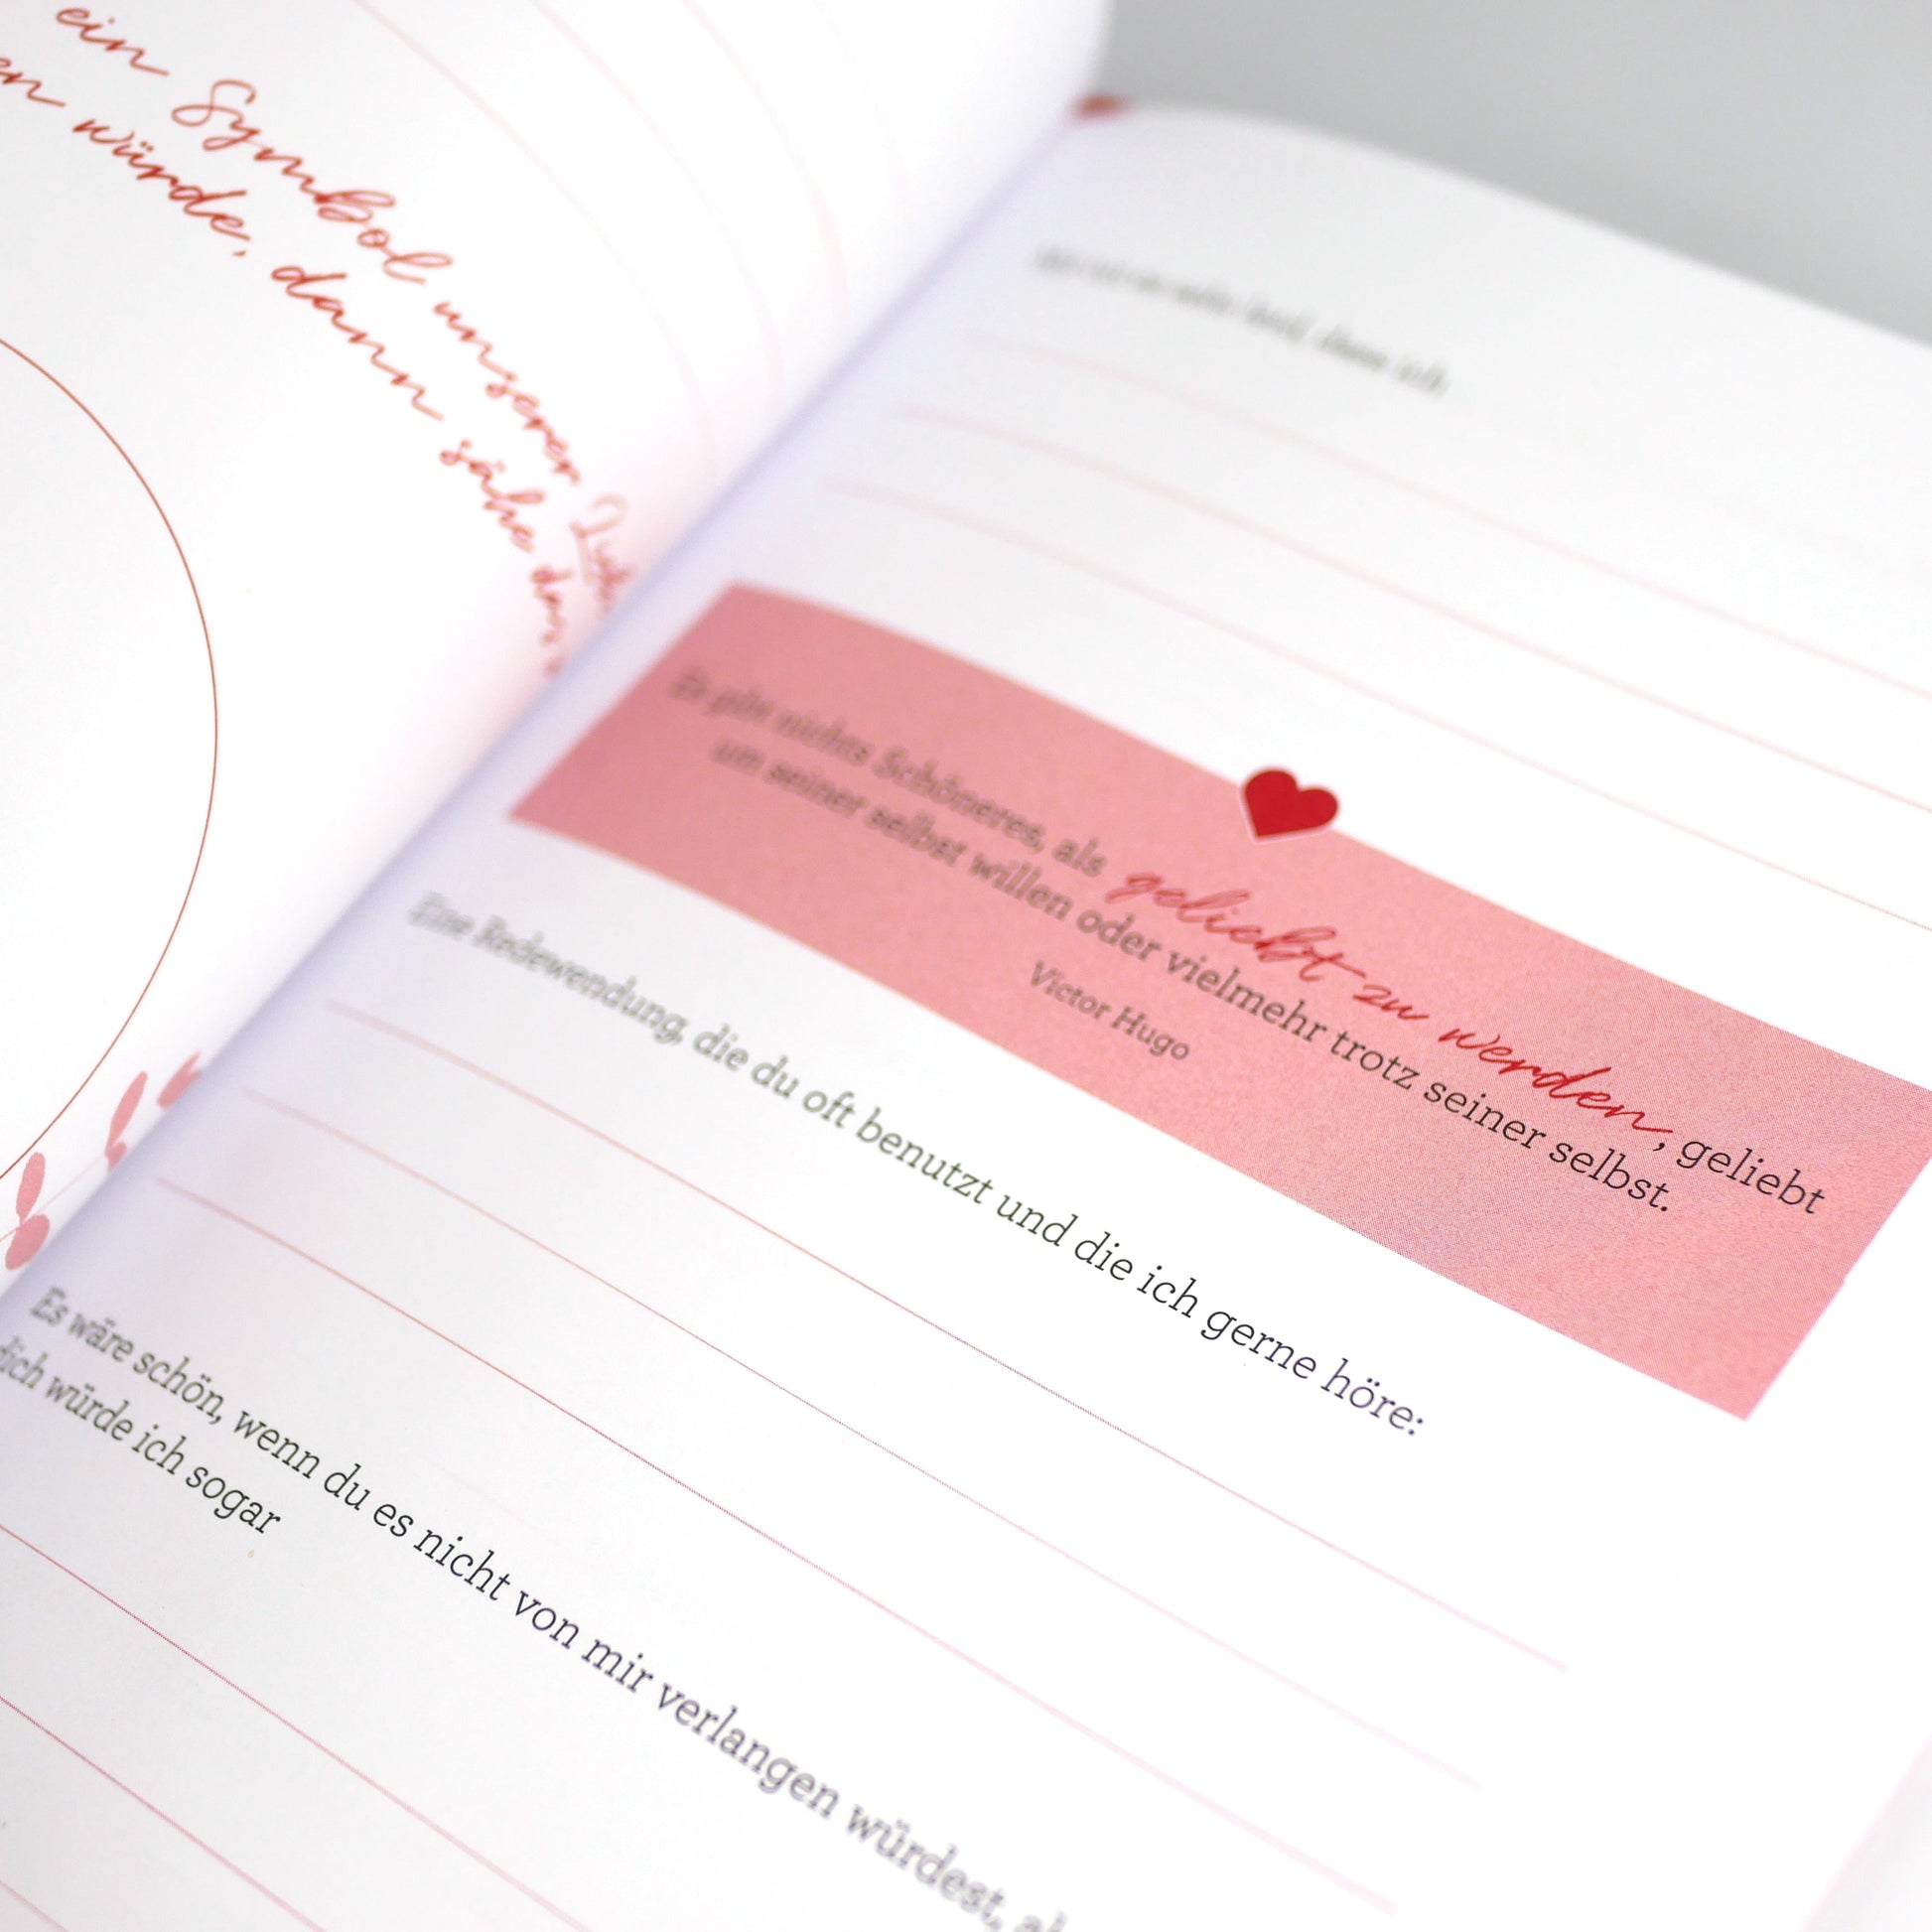 ein Symbol unserer
würde, dann sähe
Es gibt nichts Schöneres, als geliebt zu werden, geliebt
um seiner selbst willen oder vielmehr trotz seiner selbst.
Victor Hugo
Eine Redewendung, die du oft benutzt und die ich gerne höre:
Es wäre schön, wenn du es nicht von mir verlangen würdest,
dich würde ich sogar